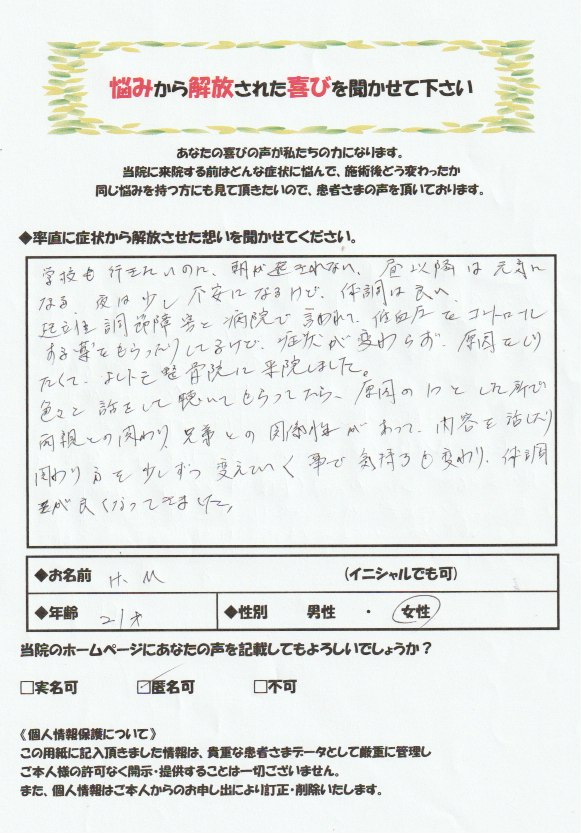 悩みから解放された喜びを聞かせて下さい
あなたの喜びの声が私たちの力になります。
当院に来院する前はどんな症状に悩んで、施術後どう変わったか
同じ悩みを持つ方にも見て頂きたいので、患者さまの声を頂いております。
◆率直に症状から解放させた想いを聞かせてください。
学校も行きたいのに、朝が起きれない、昼以降は元気に
なる。夜は少し不安になるけど、体調は良い、
起立性調節障害と病院で言われて、低血圧をコントロール
する薬をもらったりしてるけど、症状が変わらず、原因をしり
たくて、よしもと整骨院に来院しました。
色々と話をして聴いてもらってたら、原因の1つとした所で
両親との関わり、兄弟との関係性があって、内容を話したり
関わり方を少しずつ変えていく事で気持ちも変わり、体調
が良くなってきました。
◆お名前 H.M (イニシャルでも可)
◆年齢 21才 ◆性別 男性 ・ 女性
当院のホームページにあなたの声を記載してもよろしいでしょうか？
□実名可 ☑匿名可 □不可
《個人情報保護について》
この用紙に記入頂きました情報は、貴重な患者さまデータとして厳重に管理し
ご本人様の許可なく開示・提供することは一切ございません。
また、個人情報はご本人からのお申し出により訂正・削除いたします。